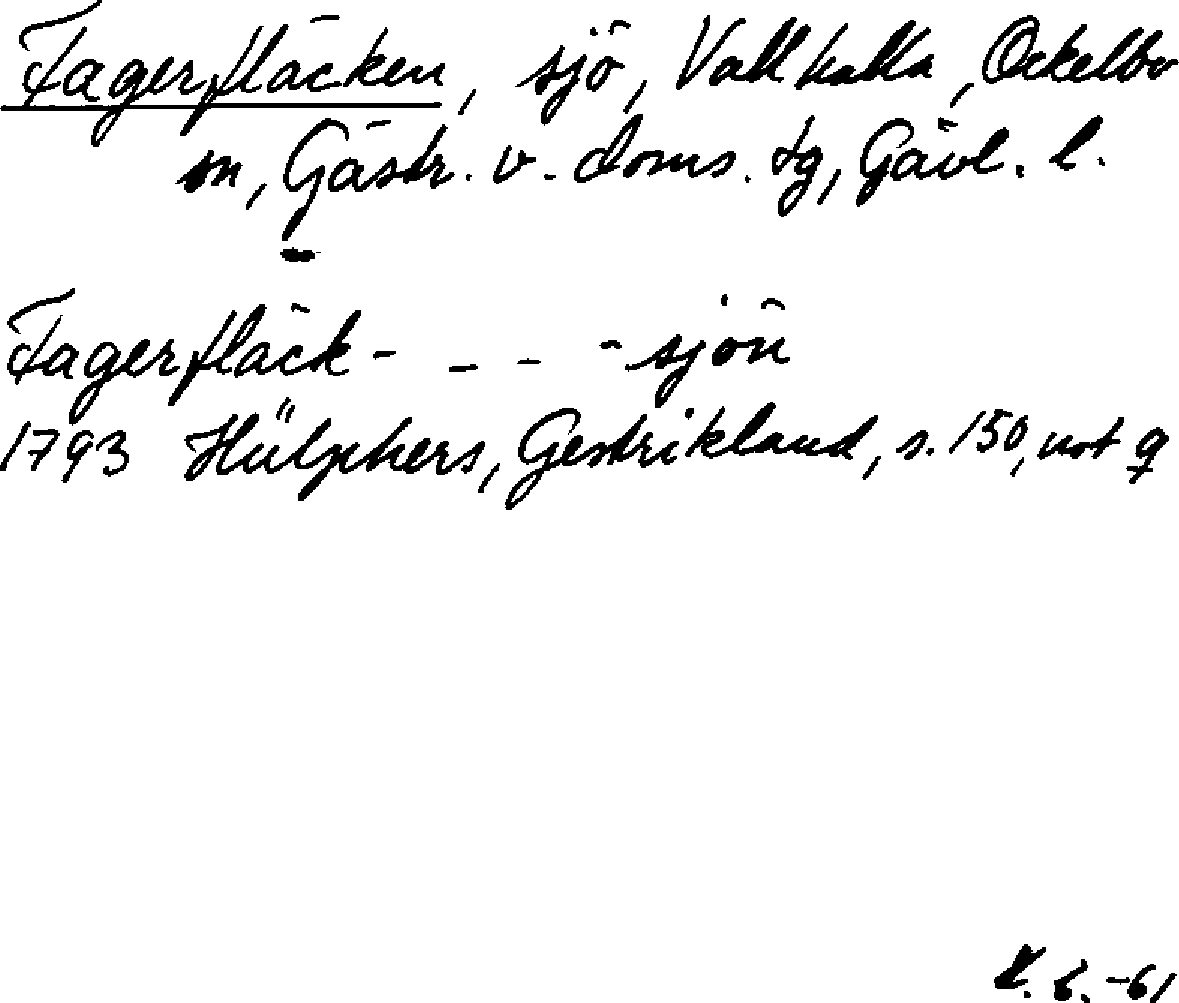 Fagerfläcken, sjö, Vallhalla, Ockelbo
sn, Gästr. v. doms. tg, Gävl. l.
Fagerfläck- _ _ - sjön
1793 Hülphers, Gestrikland, s. 150, not q
-61